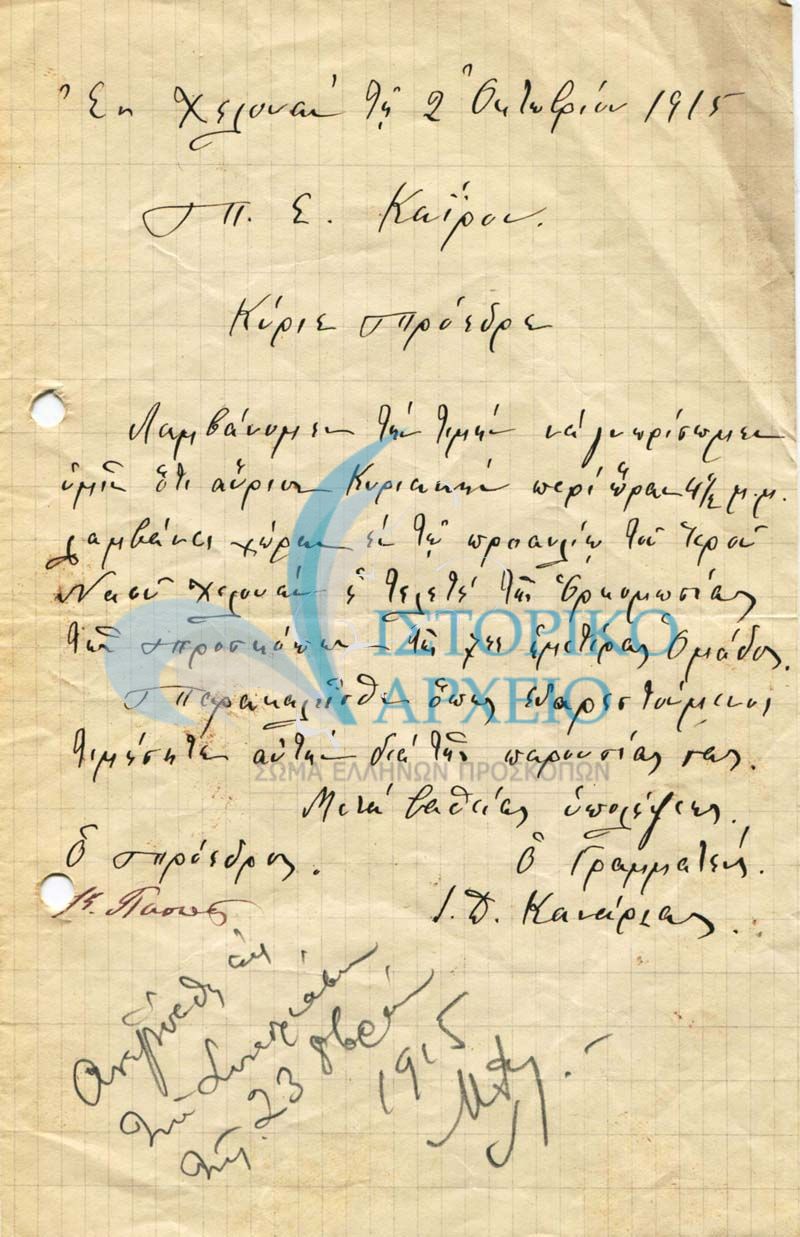 Ἐν Χελουὰν τῇ 2 Ὀκτωβρίου 1915
Π. Ε. Καΐρου.
Κύριε Πρόεδρε
Λαμβάνομεν τὴν τιμὴν νὰ γνωρίσωμεν
ὑμῖν ὅτι αὔριον Κυριακὴν περὶ ὥραν 4½ μ.μ.
λαμβάνει χώραν ἐν τῷ προαυλίῳ τοῦ Ἱεροῦ
Ναοῦ Χελουὰν ἡ τελετὴ τῆς Ὁρκομωσίας
τῶν Προσκόπων τῆς ἡμετέρας Ὁμάδος.
Παρακαλεῖσθε ὅπως εὐαρεστούμενος
τιμήσητε αὐτὴν διὰ τῆς παρουσίας σας.
Μετὰ βαθείας ὑπολήψεως.
Ὁ Πρόεδρος. Ὁ Γραμματεύς.
Κ. Ι. Δ. Κανάριας.
Ἀνεγνώσθη εἰς
τὴν Συνεδρίασιν
τῆς 23
1915
ΙΣΤΟΡΙΚΟ
ΑΡΧΕΙΟ
ΣΩΜΑ ΕΛΛΗΝΩΝ ΠΡΟΣΚΟΠΩΝ